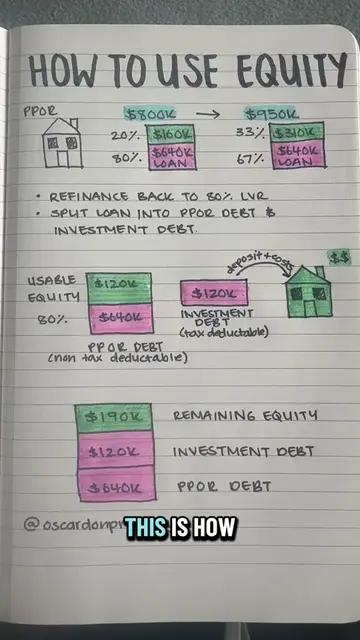 HOW TO USE EQUITY
PPOR
$800K → $950K
20% $160K 33% $310K
80% $640K LOAN 67% $640K LOAN
• REFINANCE BACK TO 80% LVR
• SPLIT LOAN INTO PPOR DEBT &
INVESTMENT DEBT.
deposit + costs
$$
USABLE EQUITY $120K
80% $640K
$120K
INVESTMENT DEBT
(tax deductable)
PPOR DEBT
(non tax deductable)
$190K REMAINING EQUITY
$120K INVESTMENT DEBT
$640K PPOR DEBT
THIS IS HOW